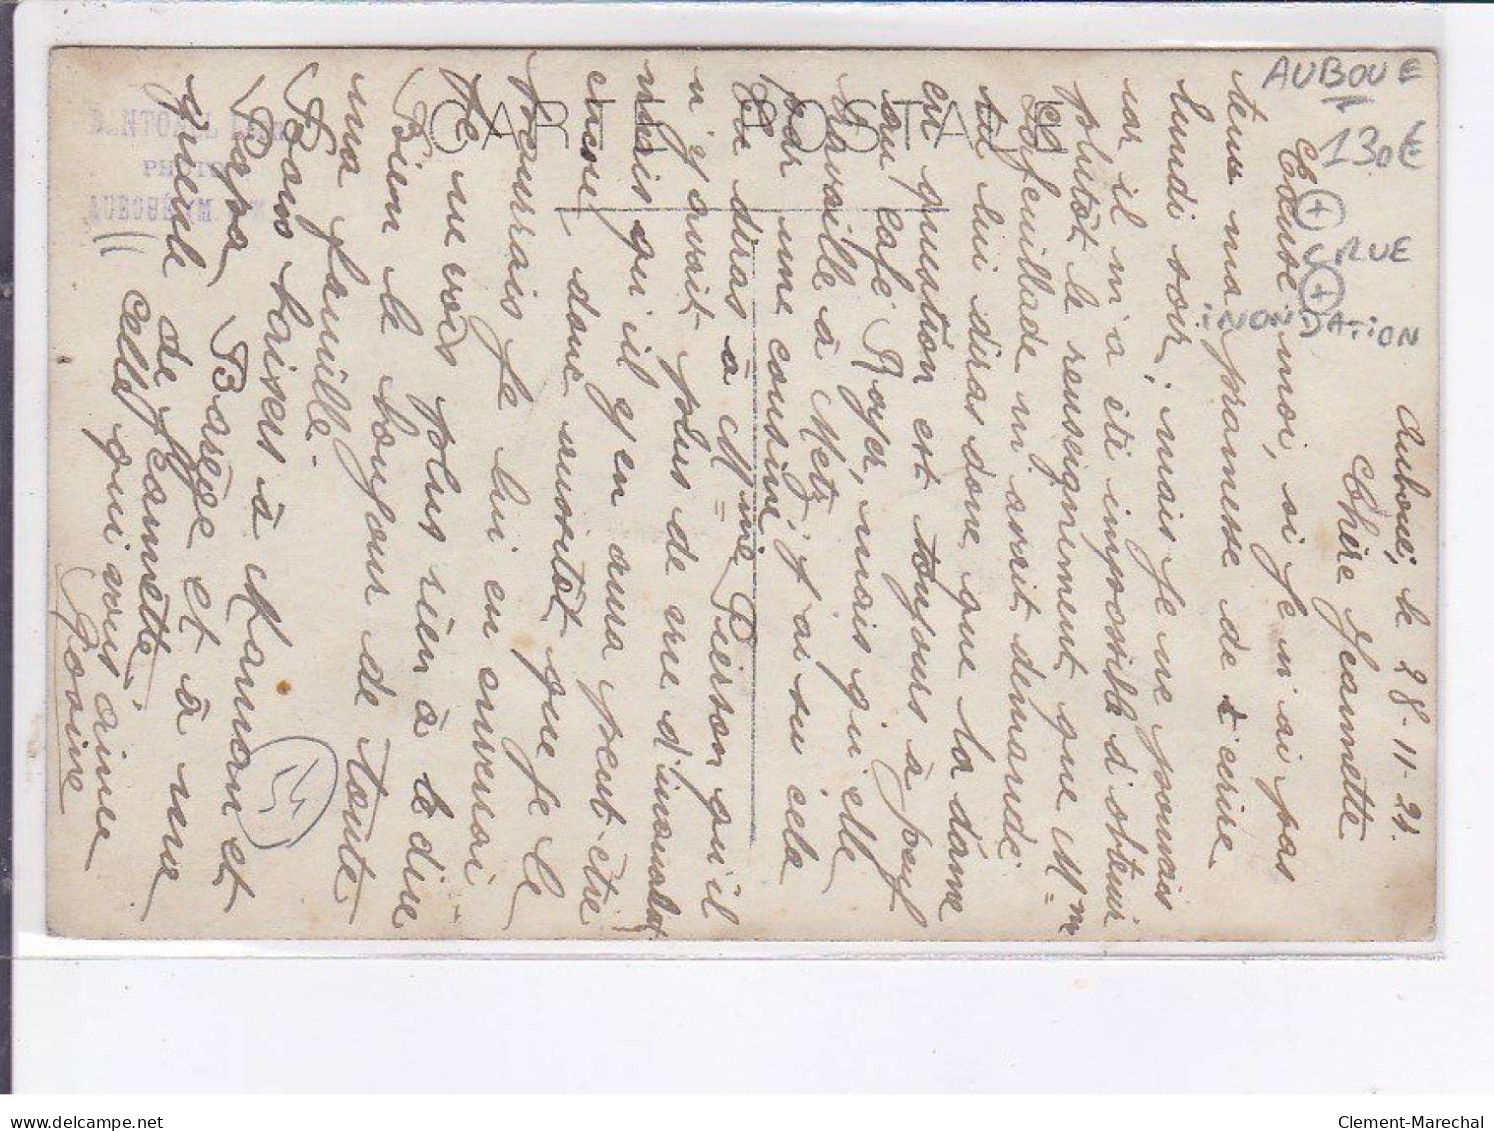 AUBOUE
130€
CRUE
INONDATION
CARTE POSTALE
PHOTO
Auboué, le 28-11-21.
Chère Jeannette
Excuse moi, si je n'ai pas
tenu ma promesse de t'écrire
lundi soir; mais je ne pouvais
car il m'a été impossible d'obtenir
plutôt le renseignement que Mme
Corfeuillade m'avait demandé
tu lui diras donc que la dame
en question est toujours à
au café Royer, mais qu'elle
travaille à Metz j'ai su cela
par une cousine.
Tu diras à Mme Pierson qu'il
n'y avait plus de vue d'inondat
mais qu'il y en aura peut-être
encore, donc aussitôt que je le
pourrais je lui en enverrai
Je ne vois plus rien à te dire
Bien le bonjour de toute
ma famille.
Bons baisers à Maman et
Papa, Barège et à ma
gueule de Jeannette,
Celle qui vous aime